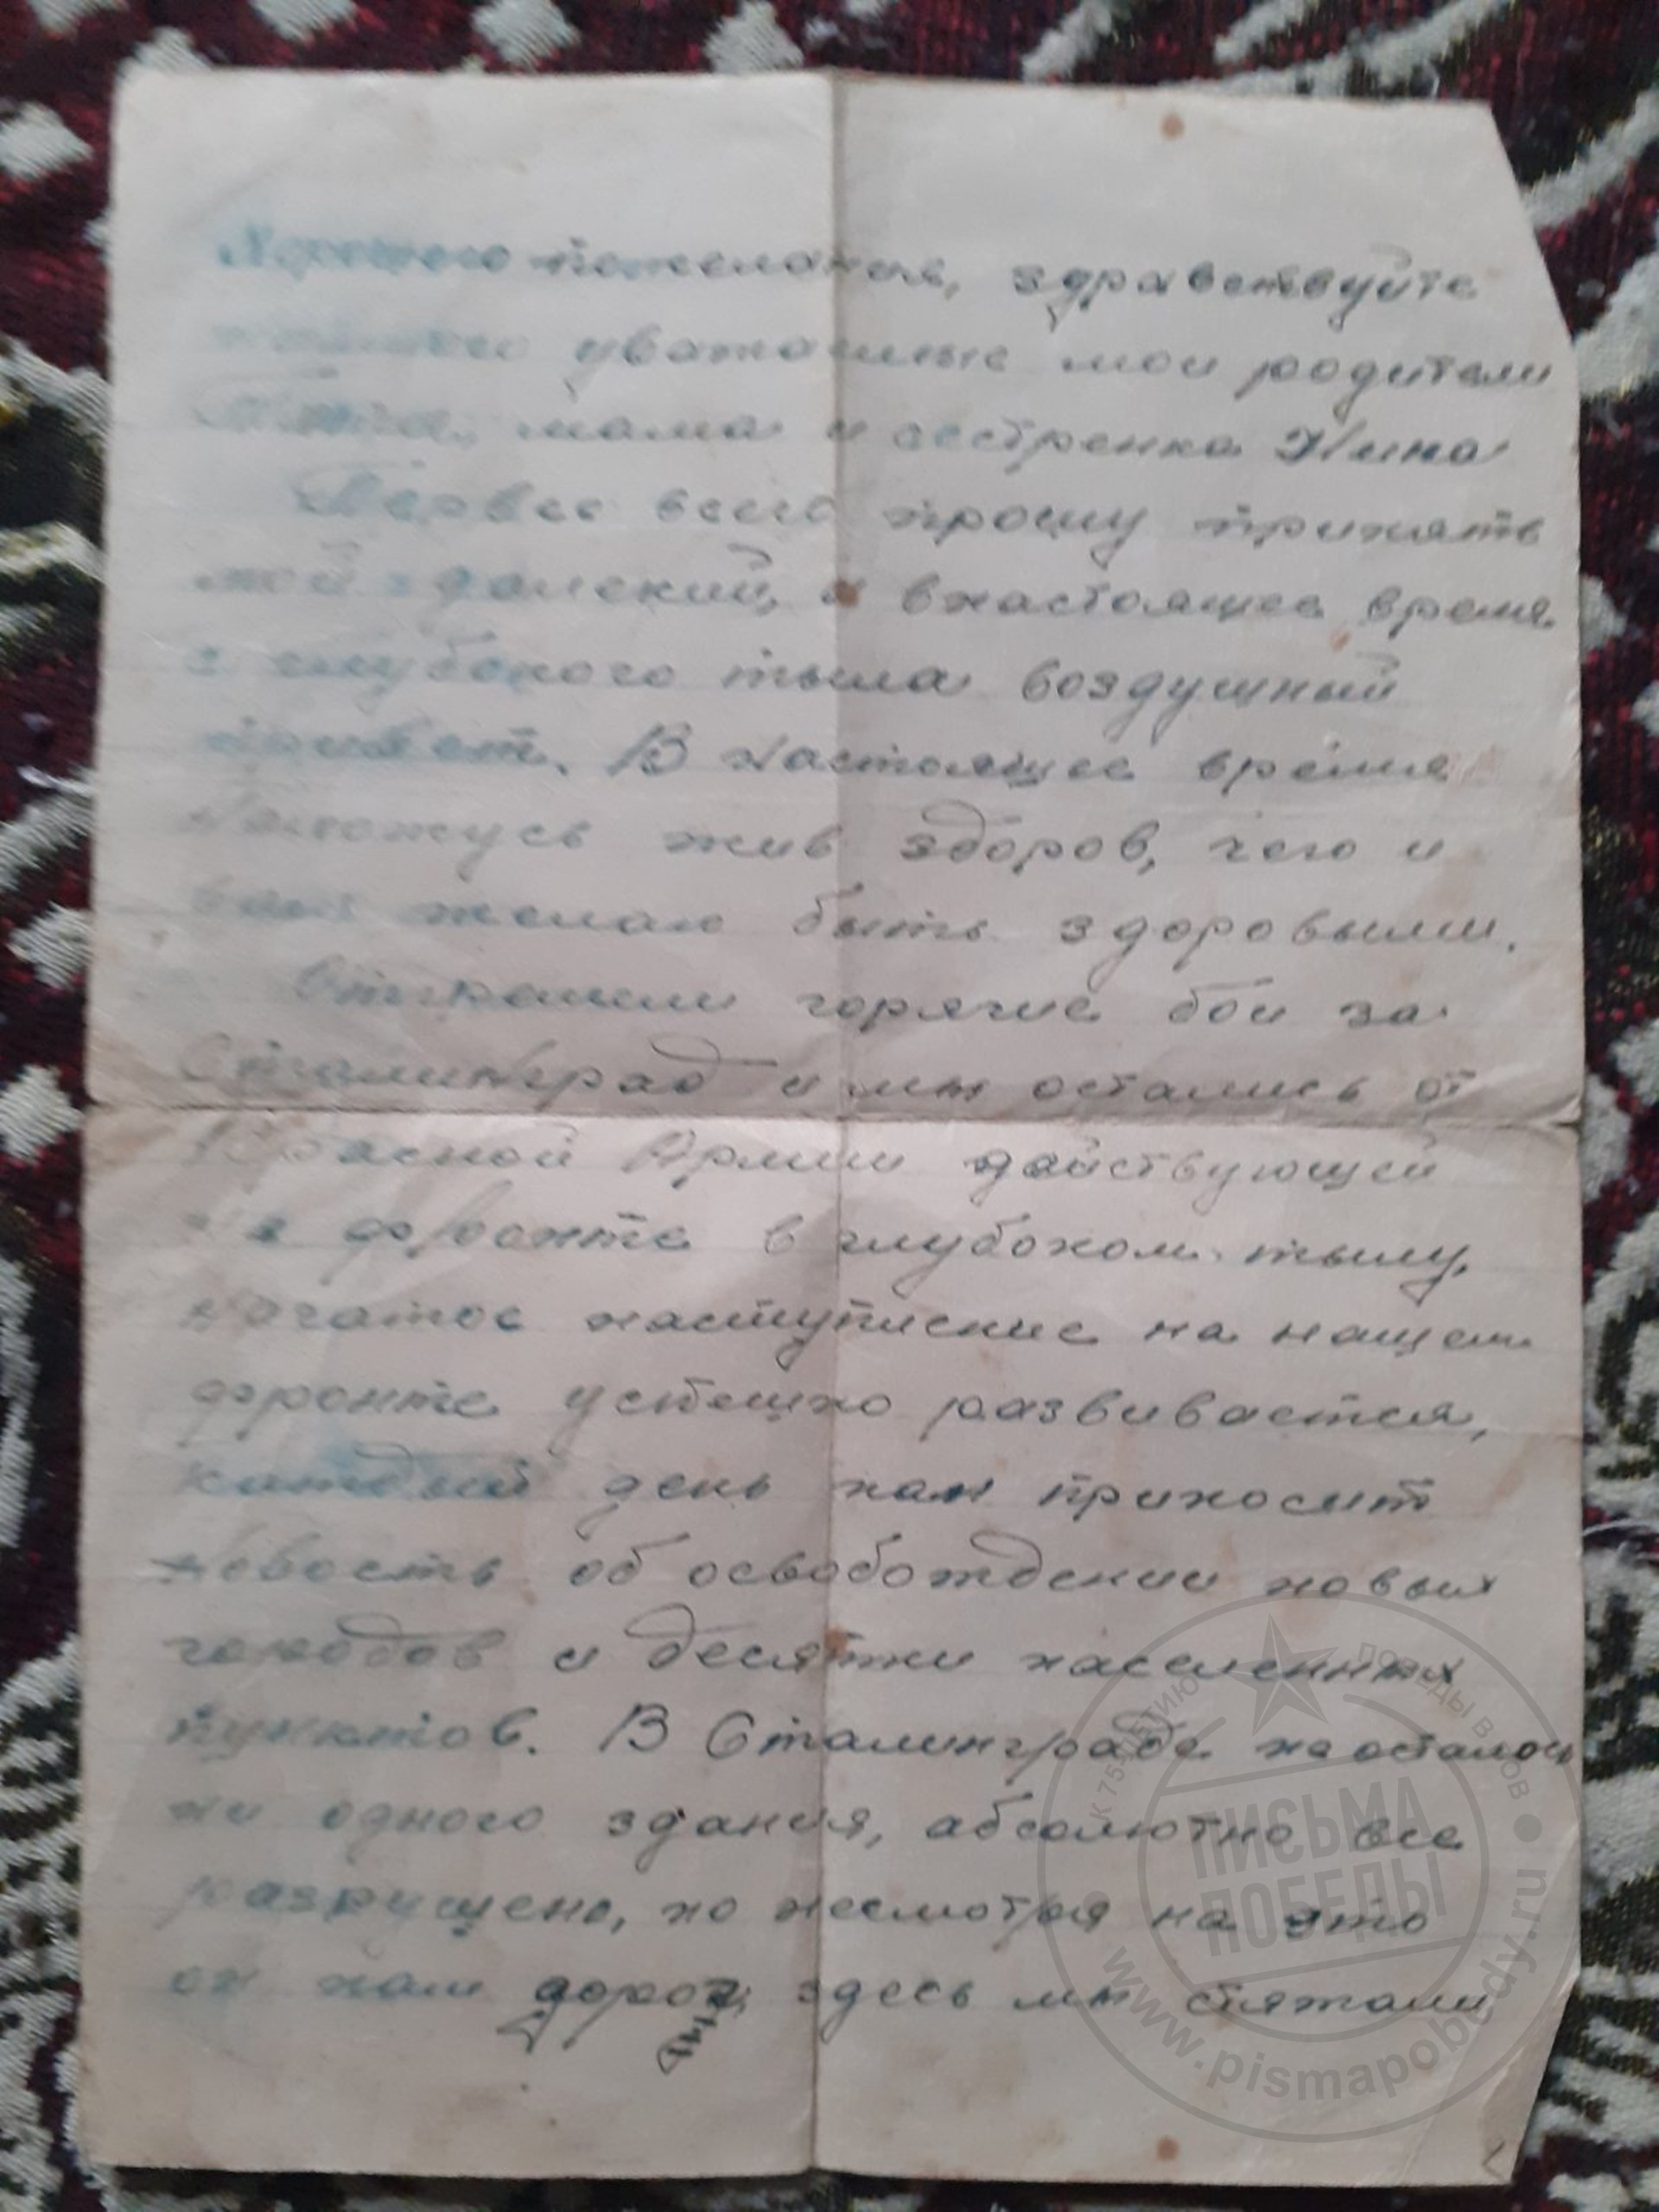 Хорошего пожелания, здравствуйте
многого уважаемые мои родители
мама и сестренка Нина
Первее всего прошу принять
мой далекий, и внастоящее время
с глубокого тыла воздушный
привет. В настоящее время
Нахожусь жив здоров, чего и
вам желаю быть здоровыми.
Отгремели горячие бои за
Сталинград и мы остались от
Красной Армии действующей
на фронте в глубоком тылу,
начатое наступление на нашем
фронте успешно развивается,
каждый день нам приносит
новость об освобождении новых
городов и десятки населенных
пунктов. В Сталинграде не осталось
ни одного здания, абсолютно все
разрушено, но несмотря на это
он нам дорог, здесь мы стяжали
К 75-ЛЕТИЮ ПОБЕДЫ В ВОВ
ПИСЬМА
ПОБЕДЫ
www.pismapobedy.ru